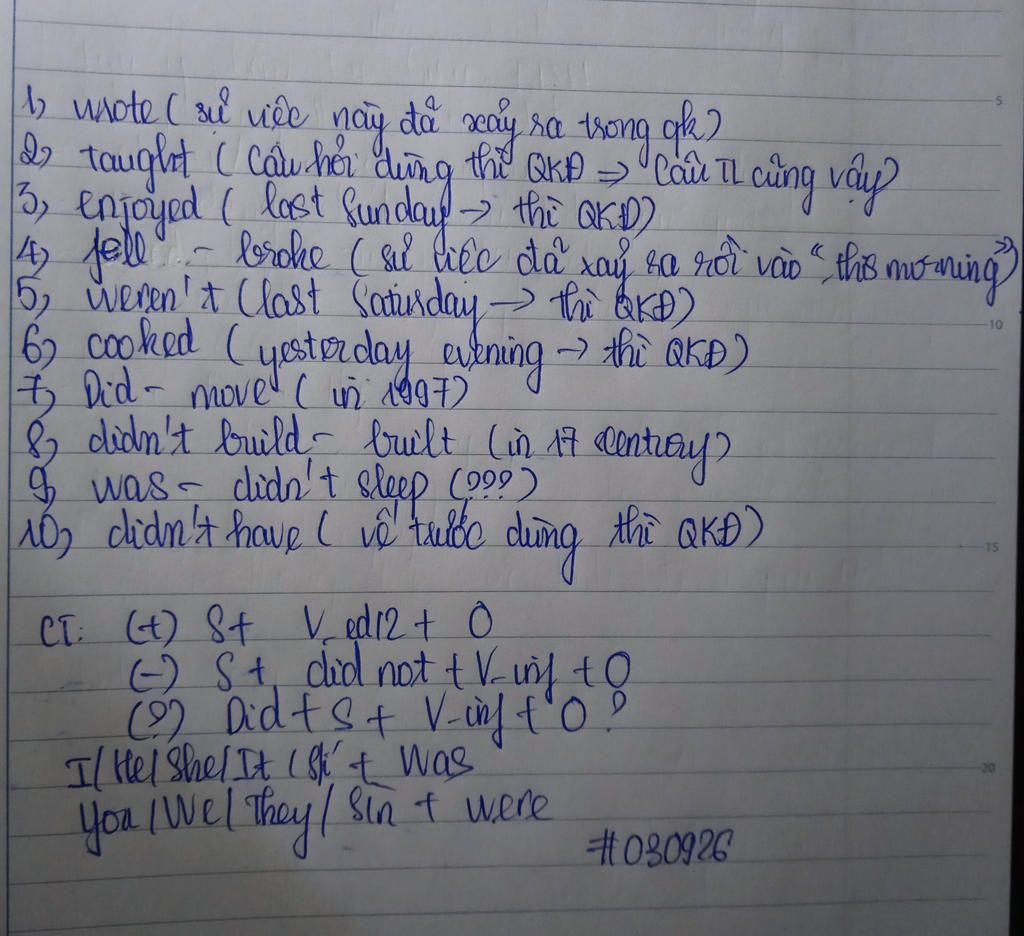 1) wrote ( sự việc này đã xảy ra trong qk)
2) taught ( Câu hỏi dùng thì QKĐ => Câu TL cũng vậy)
3) enjoyed ( last Sunday -> thì QKĐ)
4) fell - broke ( sự việc đã xảy ra rồi vào "this morning")
5) weren't (last Saturday -> thì QKĐ)
6) cooked ( yesterday evening -> thì QKĐ)
7) Did - move ( in 1997)
8) didn't build - built (in 17 century)
9) was - didn't sleep (???)
10) didn't have ( vế trước dùng thì QKĐ)
CT: (+) S+ V_ed/2 + O
(-) S+ did not + V-inf + O
(?) Did + S + V-inf + O ?
I/He/She/It / Sít + Was
You/We/They/ Sìn + were
#030926
5
10
15
20